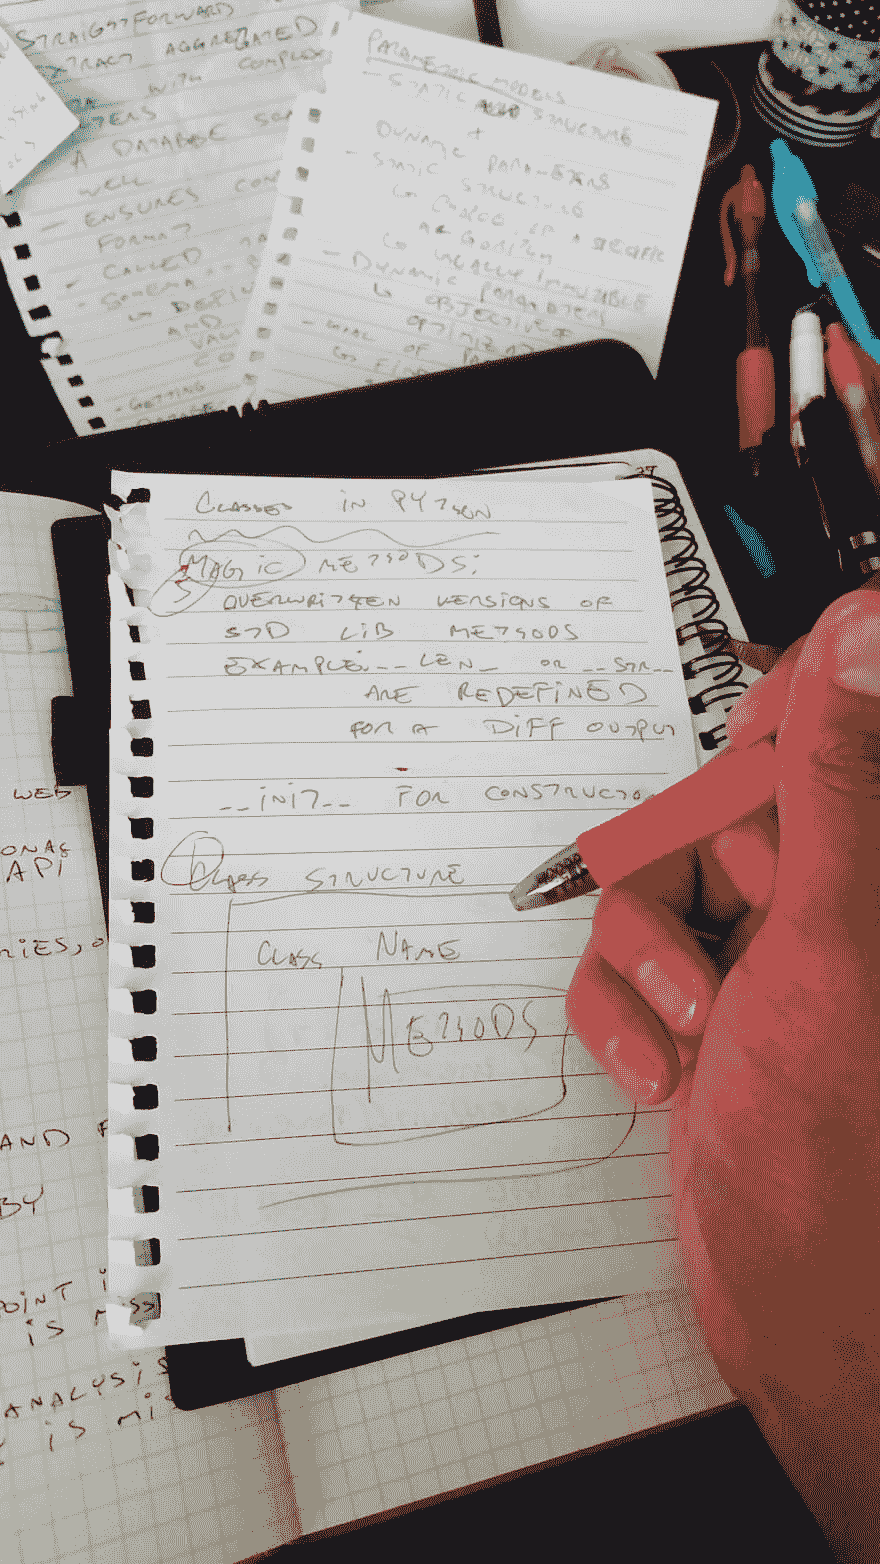 STRAIGHTFORWARD
EXTRACT AGGREGATED
WITH COMPLEX
A DATABASE
WELL
- ENSURES CON
FORMAT
- CALLED
- SCHEMA
AND
- GETTING
PARAMETRIC MODELS
- STATIC STRUCTURE
+
DYNAMIC PARAMETERS
- STATIC STRUCTURE
↳ CHOICE OF A SPECIFIC
ALGORITHM
↳ USUALLY IMMUTABLE
- DYNAMIC PARAMETERS
↳ OBJECTIVE OF
OPTIMIZAT
- GOAL OF PA
↳ FIND
37
CLASSES IN PYTHON
MAGIC METHODS:
OVERWRITTEN VERSIONS OF
STD LIB METHODS
EXAMPLE: __LEN_ OR __STR__
ARE REDEFINED
FOR A DIFF OUTPUT
__INIT__ FOR CONSTRUCTO
CLASS STRUCTURE
CLASS NAME
METHODS
WEB
ONAS
API
RIES, O
AND F
BY
POINT I
IS MISS
ANALYSIS
IS MI